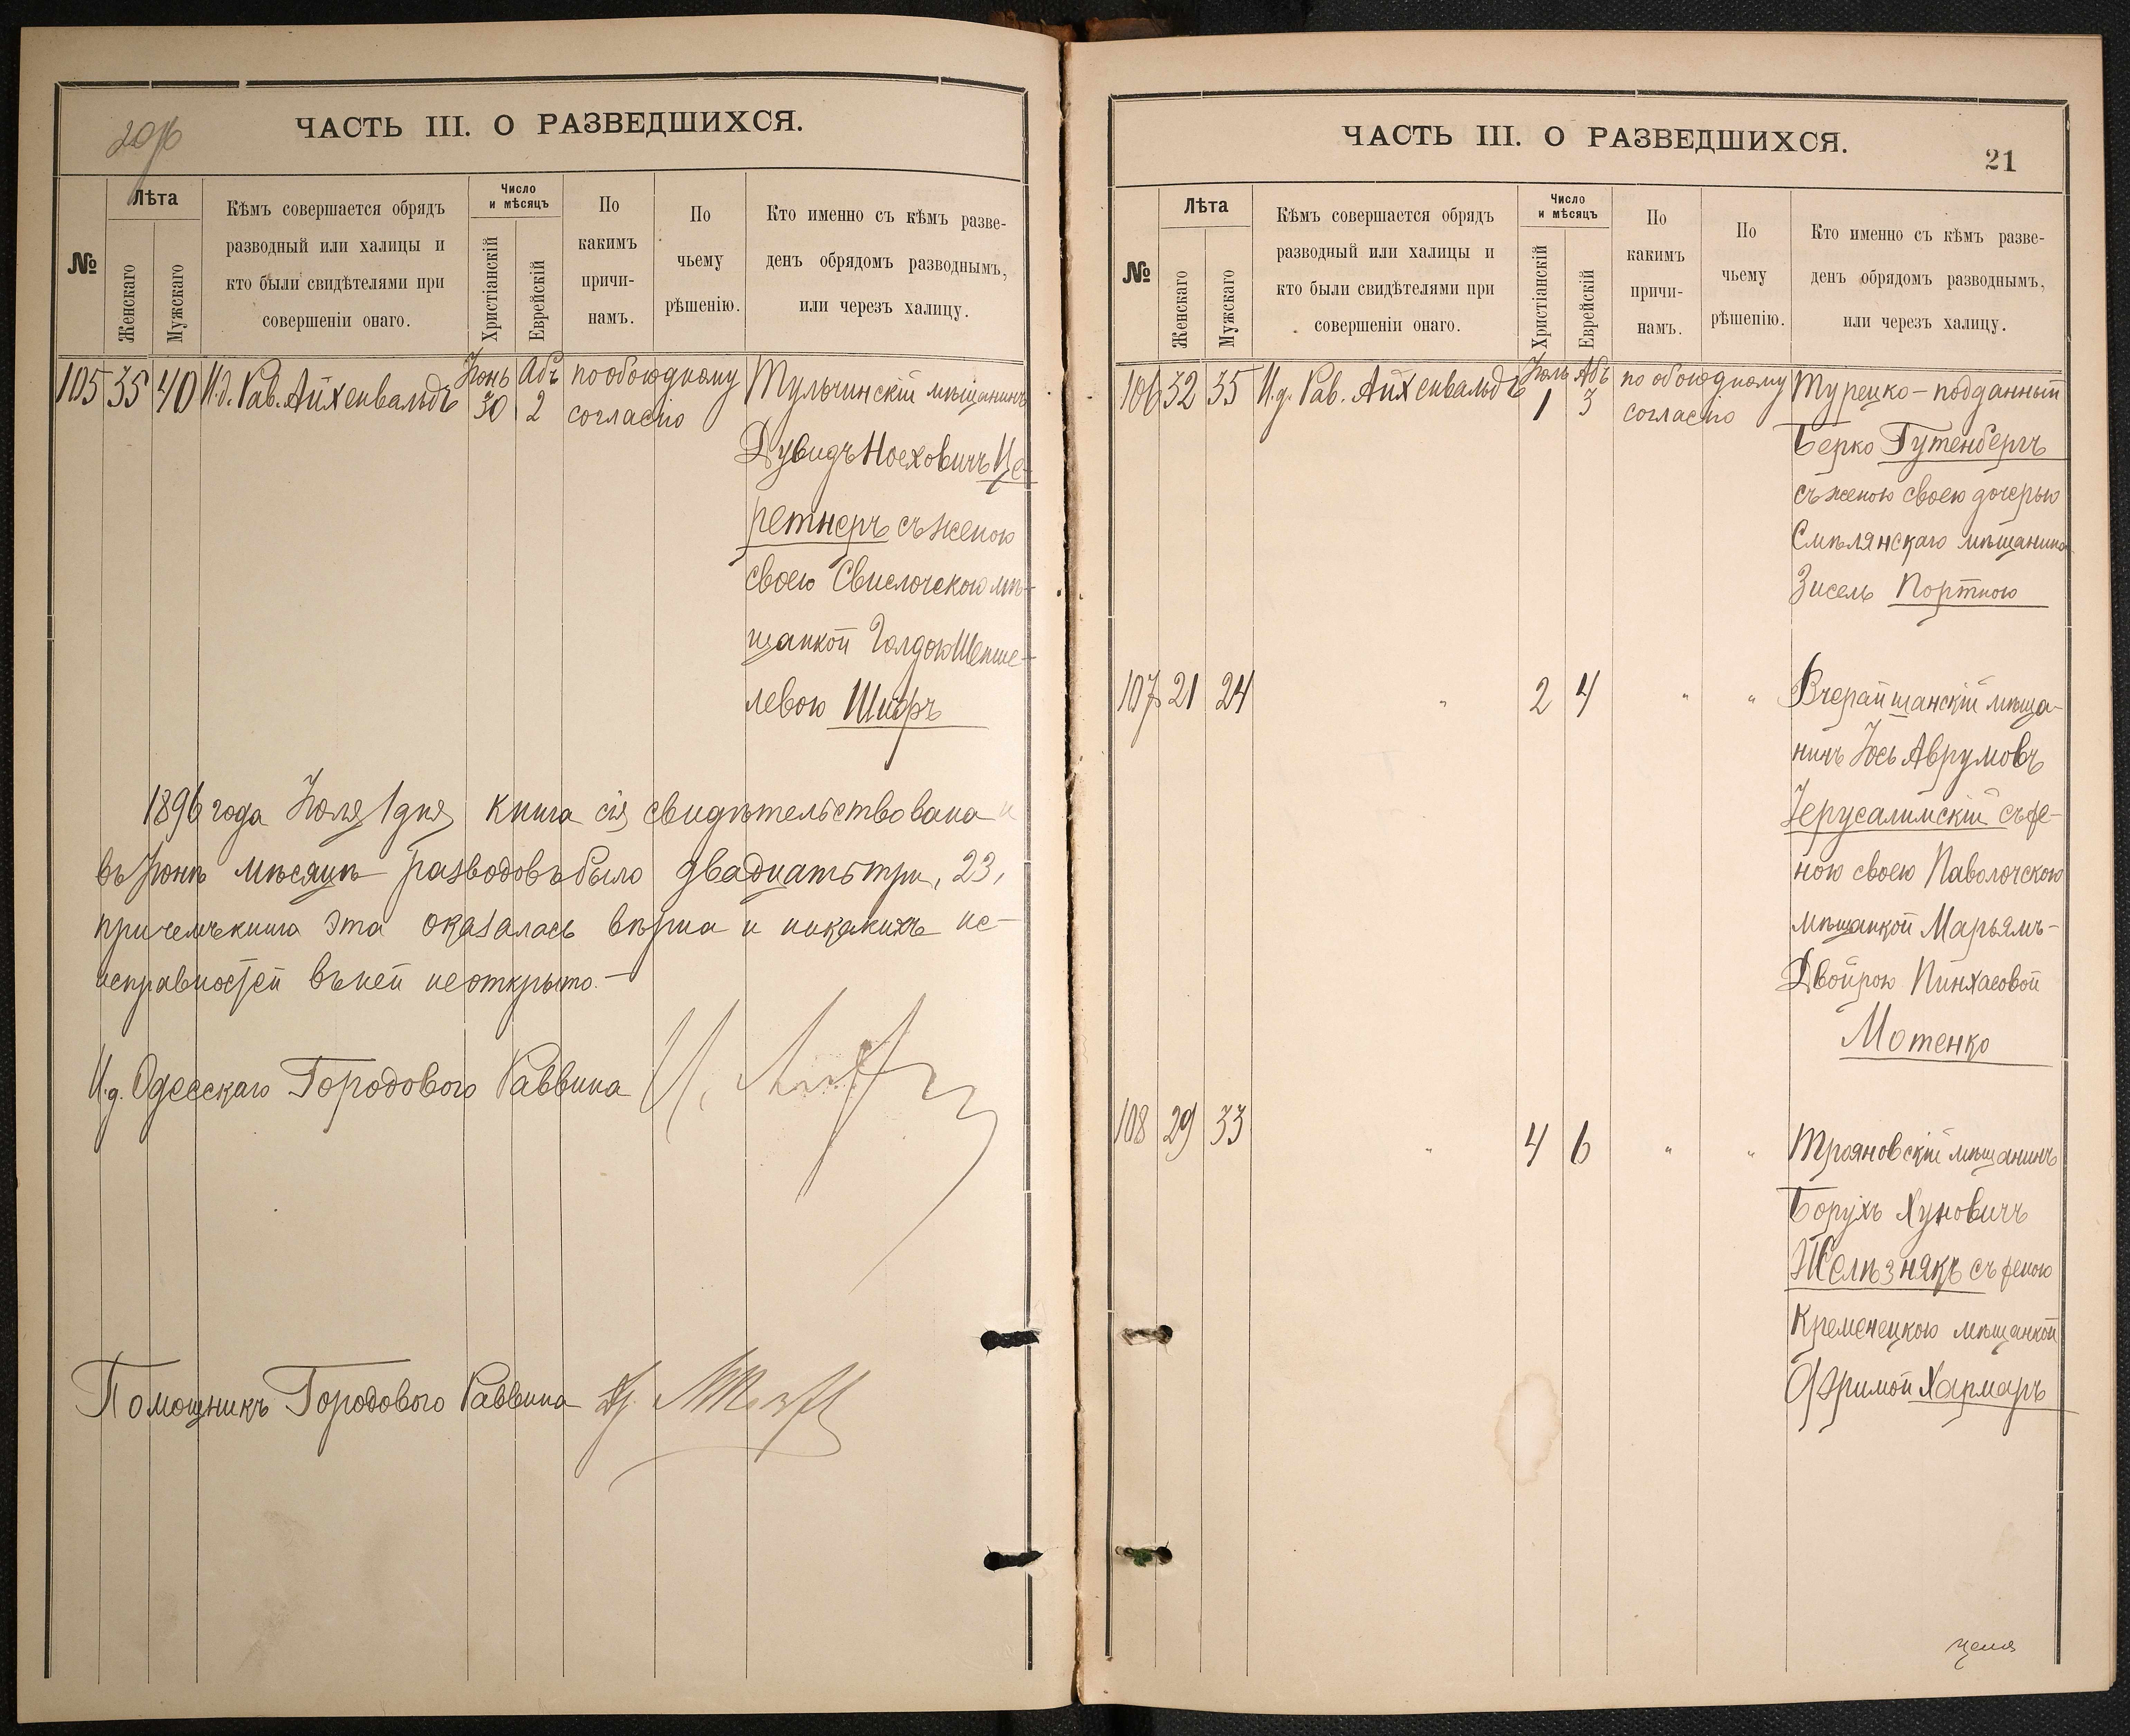 20об
ЧАСТЬ III. О РАЗВЕДШИХСЯ.
№
Лѣта
Женскаго
Мужскаго
Кѣмъ совершается обрядъ
разводный или халицы и
кто были свидѣтелями при
совершеніи онаго.
Число
и мѣсяцъ
Христіанскій
Еврейскій
По
какимъ
причи-
намъ.
По
чьему
рѣшенію.
Кто именно съ кѣмъ разве-
денъ обрядомъ разводнымъ,
или через халицу.
105 35 40 И.д. Рав. Айхенвальдъ Іюнь 30 Абъ 2 по обоюдному
согласію
Тульчинскій мѣщанинъ
Дувидъ Ноеховичъ Це-
ретнеръ съ женою
своею Свислочскою мѣ-
щанкой Голдою Шепше-
левою Шифръ
1896 года Іюля 1 дня книга сія свидѣтельствована и
въ Іюнѣ мѣсяцѣ разводовъ было двадцать три, 23,
причемъ книга эта оказалась вѣрна и никакихъ не-
исправностей въ ней не открыто.—
И.д. Одесскаго Городового Раввина
Помощникъ Городового Раввина
ЧАСТЬ III. О РАЗВЕДШИХСЯ.
21
№
Лѣта
Женскаго
Мужскаго
Кѣмъ совершается обрядъ
разводный или халицы и
кто были свидѣтелями при
совершеніи онаго.
Число
и мѣсяцъ
Христіанскій
Еврейскій
По
какимъ
причи-
намъ.
По
чьему
рѣшенію.
Кто именно съ кѣмъ разве-
денъ обрядомъ разводнымъ,
или через халицу.
106 32 35 И.д. Рав. Айхенвальдъ Іюль 1 Абъ 3 по обоюдному
согласію
Турецко-подданный
Берко Гутенбергъ
съ женою своею дочерью
Смѣлянскаго мѣщанина
Зисель Портною
107 21 24 " 2 4 " " Вчерайшанскій мѣща-
нинъ Іось Аврумовъ
Іерусалимскій съ же-
ною своею Паволочскою
мѣщанкой Марьямъ-
Двойрою Пинхасовой
Мотенко
108 29 33 " 4 6 " " Трояновскій мѣщанинъ
Борухъ Хуновичъ
Желѣзнякъ съ женою
Кременецкою мѣщанкой
Фримой Хармаръ